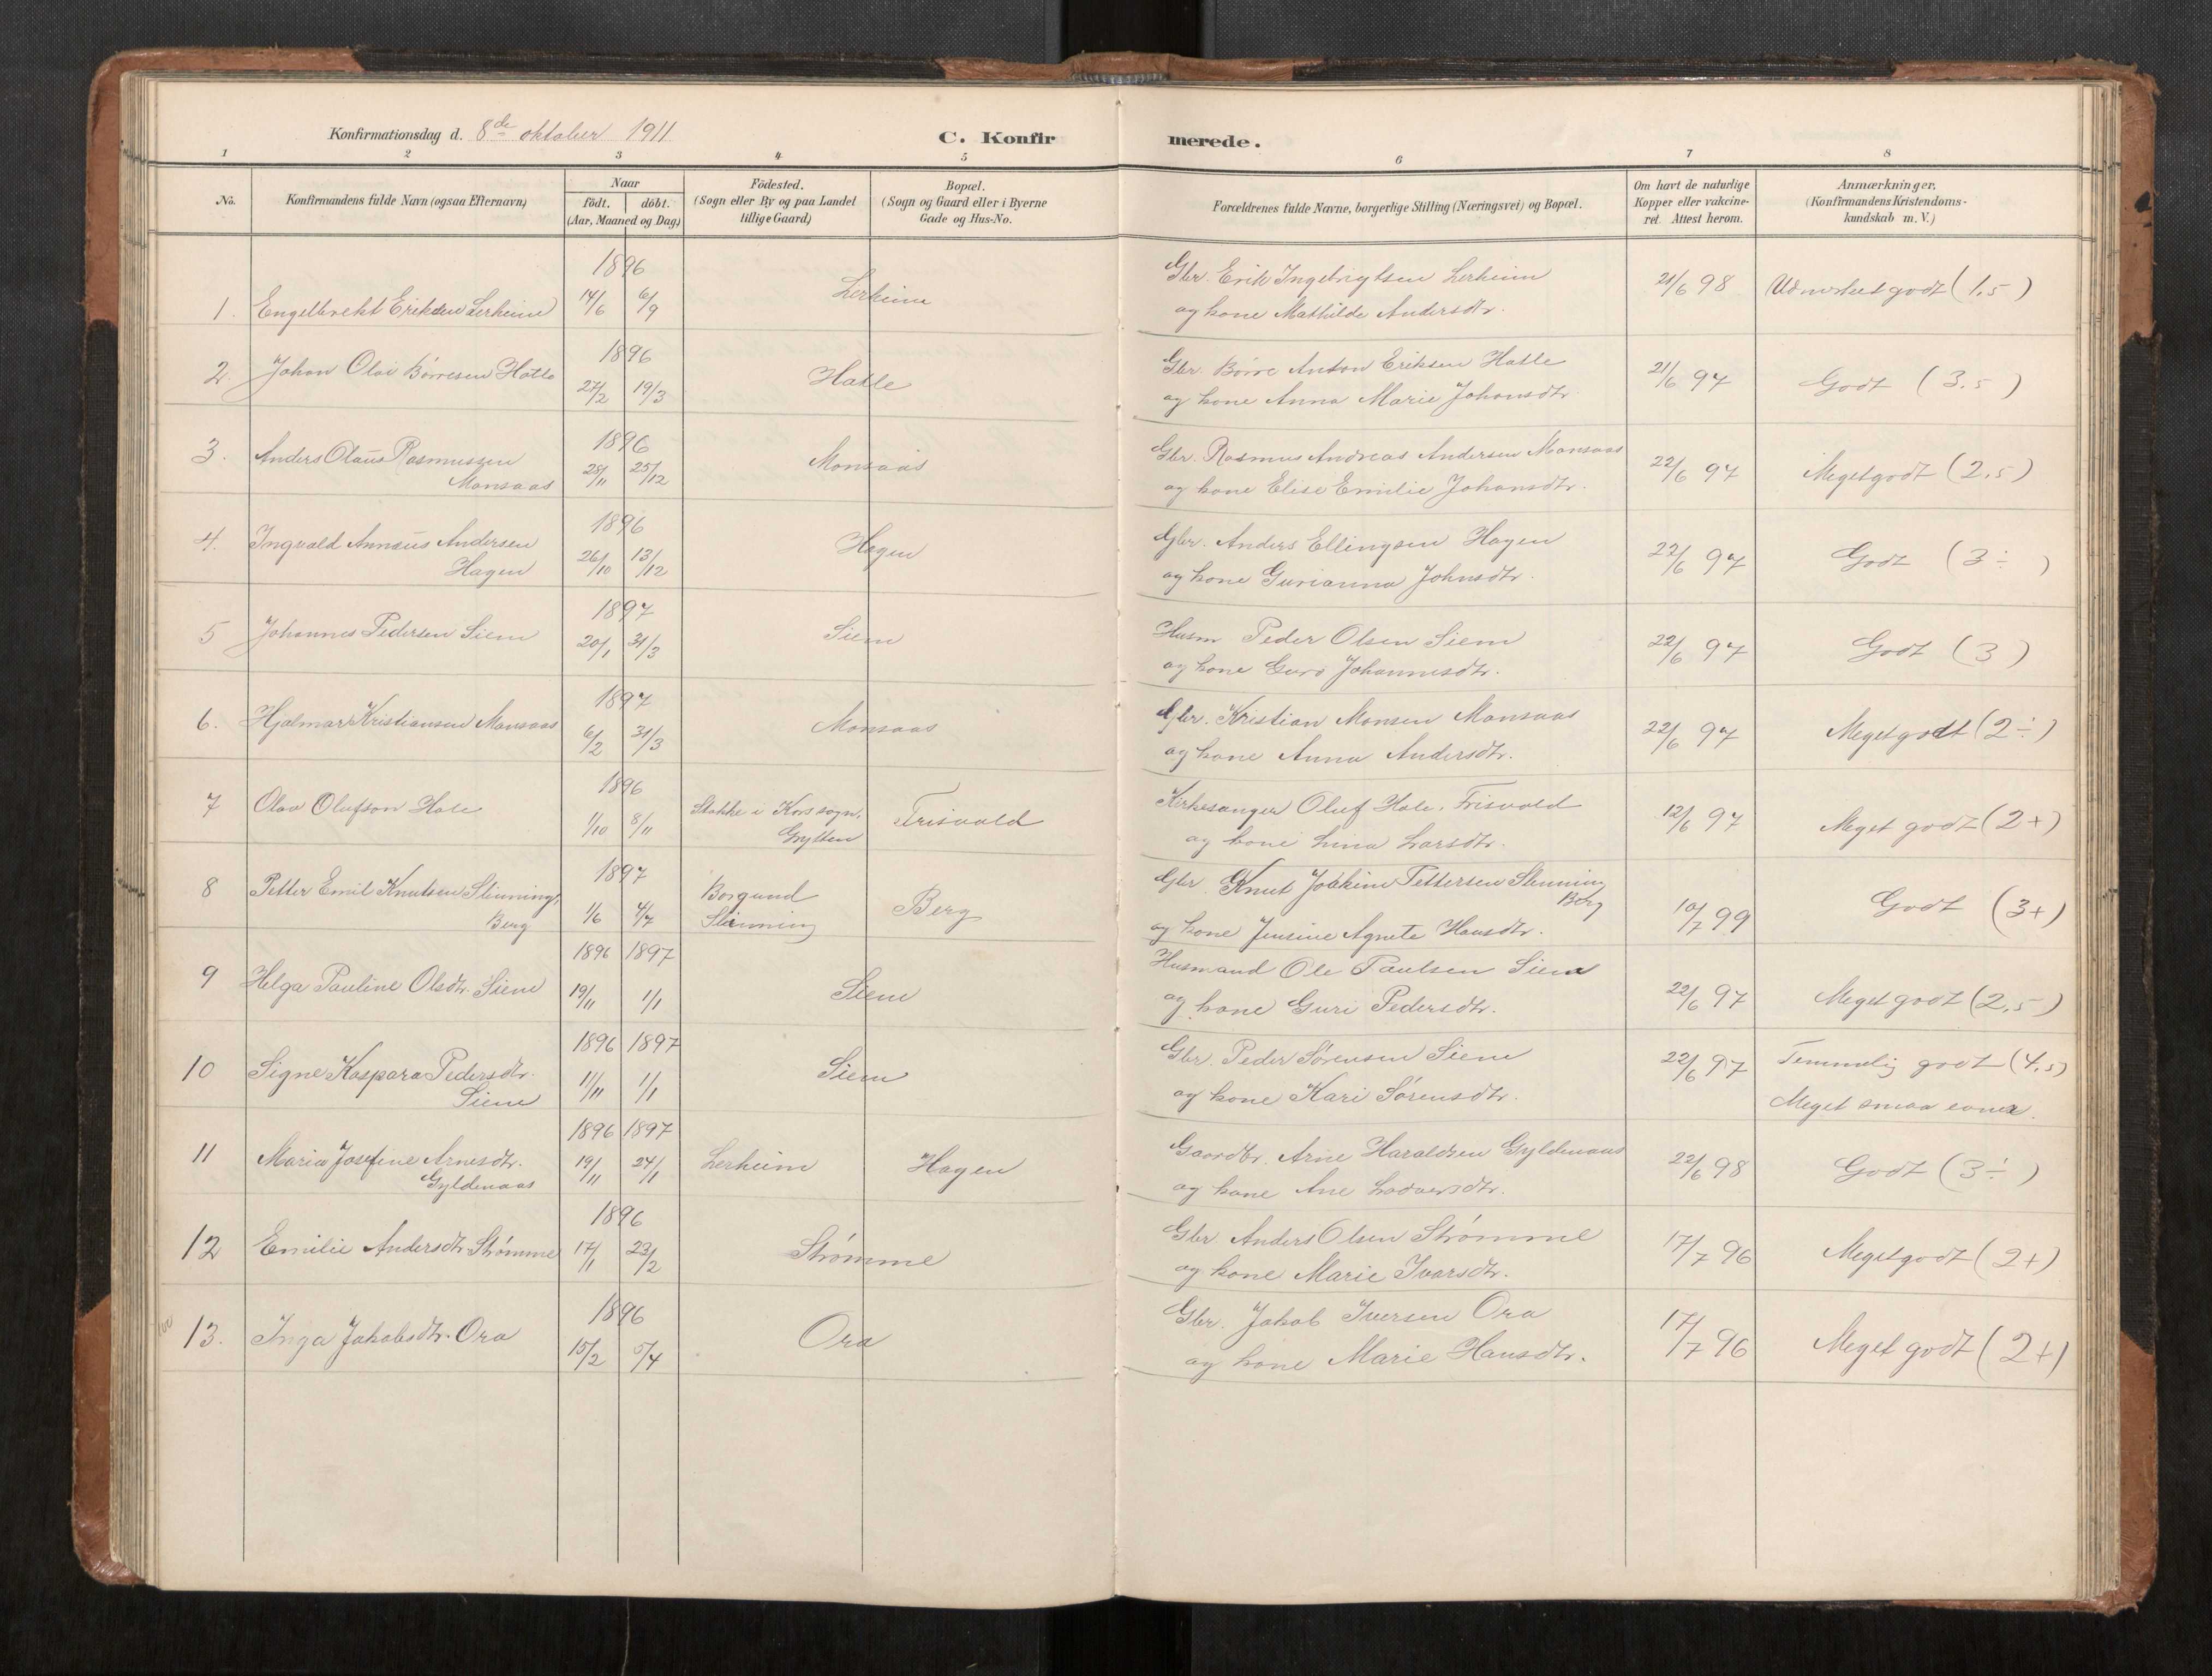 Konfirmationsdag d. 8de oktober 1911
C. Konfirmerede.
1 2 3 4 5 6 7 8
No.
Konfirmandens fulde Navn (ogsaa Efternavn)
Naar
født. døbt.
(Aar, Maaned og Dag)
Födested.
(Sogn eller By og paa Landet
tillige Gaard)
Bopæl.
(Sogn og Gaard eller i Byerne
Gade og Hus-No.
Forældrenes fulde Navne, borgerlige Stilling (Næringsvei) og Bopæl.
Om havt de naturlige
Kopper eller vakcine-
ret. Attest herom.
Anmærkninger.
(Konfirmandens Kristendoms-
kundskab m. V.)
1896
1. Engelbrekt Eriksen Lerheim 14/6 6/9 Lerheim
Gbr. Erik Ingebrigtsen Lerheim
og kone Mathilde Andersdtr.
21/6 98 Udmerket godt (1,5)
1896
2. Johan Olai Børresen Hatle 27/2 19/3 Hatle
Gbr. Børre Anton Eriksen Hatle
og kone Anna Marie Johansdtr.
21/6 97 Godt (3.5)
1896
3. Anders Olaus Rasmussen
Monsaas 28/11 25/12 Monsaas
Gbr. Rasmus Andreas Andersen Monsaas
og kone Elise Emilie Johansdtr.
22/6 97 Meget godt (2,5)
1896
4. Ingvald Annæus Andersen
Hagen 26/10 13/12 Hagen
Gbr. Anders Ellingsen Hagen
og kone Gurianna Johnsdtr.
22/6 97 Godt (3÷)
1897
5 Johannes Pedersen Siem 20/1 31/3 Siem
Husm Peder Olsen Siem
og kone Guro Johannesdtr.
22/6 97 Godt (3)
1897
6. Hjalmar Kristiansen Monsaas 6/2 31/3 Monsaas
Gbr. Kristian Monsen Monsaas
og kone Anna Andersdtr.
22/6 97 Meget godt (2÷)
1896
7 Olav Olufson Hole 1/10 8/11 Stokke i Kors sogn,
Grytten Frisvold
Kirkesanger Oluf Hole, Frisvold
og kone Lina Larsdtr.
12/6 97 Meget godt (2+)
1897
8 Petter Emil Knutsen Slinning,
Berg 1/6 4/7 Borgund
Slinning Berg
Gbr. Knut Joakim Pettersen Slinning
Berg
og kone Jensine Agnete Hansdtr.
10/7 99 Godt (3+)
1896 1897
9 Helga Pauline Olsdtr. Siem 19/11 1/1 Siem
Husmand Ole Paulsen Siem
og kone Guri Pedersdtr.
22/6 97 Meget godt (2,5)
1896 1897
10 Signe Kaspara Pedersdtr.
Siem 11/11 1/1 Siem
Gbr. Peder Sørensen Siem
og kone Kari Sørensdtr.
22/6 97 Temmelig godt (4,5)
Meget smaa evner.
1896 1897
11 Maria Josefine Arnesdtr.
Gyldenaas 19/11 24/1 Lerheim Hagen
Gaardbr. Arne Haraldsen Gyldenaas
og kone Ane Ladversdtr.
22/6 98 Godt (3÷)
1896
12 Emilie Andersdtr. Strømme 17/1 23/2 Strømme
Gbr Anders Olsen Strømme
og kone Marie Ivarsdtr.
17/7 96 Meget godt (2+)
1896
13. Inga Jakobsdtr. Ora 15/2 5/4 Ora
Gbr. Jakob Iversen Ora
og kone Marie Hansdtr.
17/7 96 Meget godt (2+)